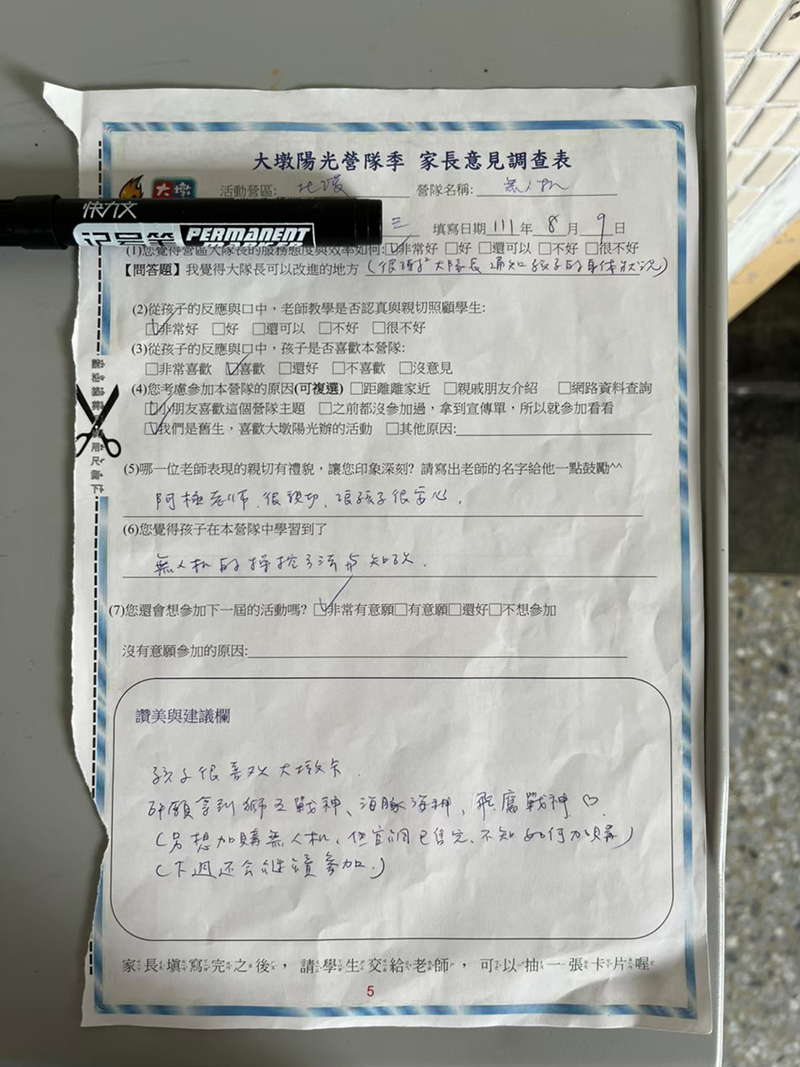 大墩陽光營隊季 家長意見調查表
大墩 活動營區: 北陵 營隊名稱: 無人机
三 填寫日期 111 年 8 月 9 日
快力文
记号笔 PERMANENT MARKER
(1)您覺得營區大隊長的服務態度與效率如何:☑非常好 □好 □還可以 □不好 □很不好
【問答題】我覺得大隊長可以改進的地方 (很謝謝大隊長通知孩子的身体狀況)
(2)從孩子的反應與口中，老師教學是否認真與親切照顧學生:
☑非常好 □好 □還可以 □不好 □很不好
(3)從孩子的反應與口中，孩子是否喜歡本營隊:
□非常喜歡 ☑喜歡 □還好 □不喜歡 □沒意見
(4)您考慮參加本營隊的原因(可複選) □距離離家近 □親戚朋友介紹 □網路資料查詢
☑小朋友喜歡這個營隊主題 □之前都沒參加過，拿到宣傳單，所以就參加看看
☑我們是舊生，喜歡大墩陽光辦的活動 □其他原因:
(5)哪一位老師表現的親切有禮貌，讓您印象深刻? 請寫出老師的名字給他一點鼓勵^^
阿極老师 很親切，跟孩子很常心.
(6)您覺得孩子在本營隊中學習到了
無人机的操控方法與知識.
(7)您還會想參加下一屆的活動嗎? ☑非常有意願□有意願□還好□不想參加
沒有意願參加的原因:
讚美與建議欄
孩子很喜欢大墩卡
許願拿到獅王戰神、海豚海神、飛鷹戰神♡.
(另想加購無人机，但官網已售完，不知如何加購)
(下週还会继續參加.)
家長填寫完之後，請學生交給老師，可以抽一張卡片喔
5